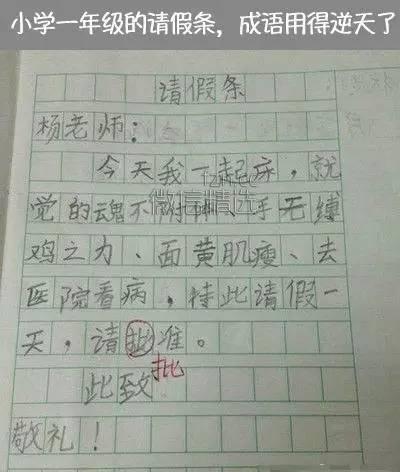 小学一年级的请假条，成语用得逆天了
请假条
杨老师：
今天我一起床，就
觉的魂不附体、手无缚
鸡之力、面黄肌瘦、去
医院看病，特此请假一
天，请批准。
批
此致
敬礼！
微信精选